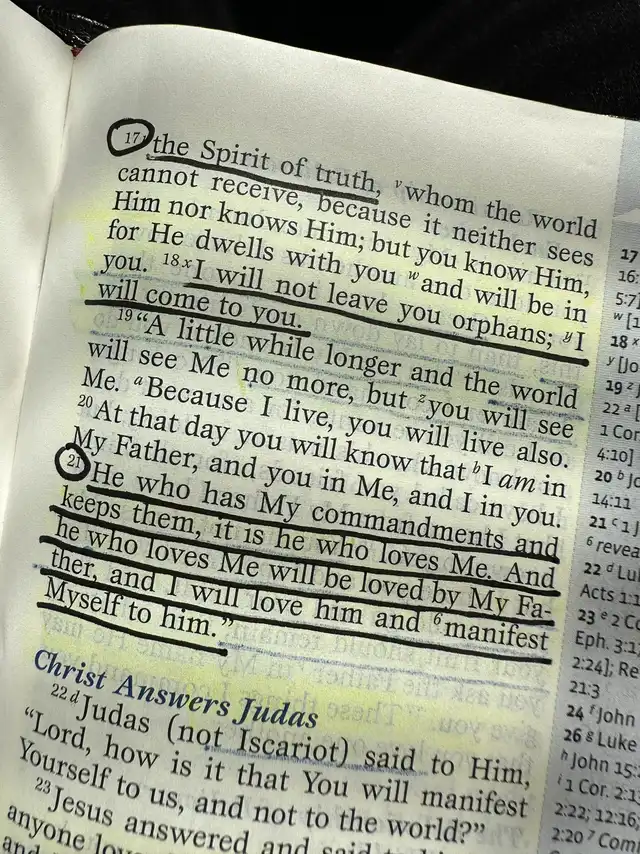 17 the Spirit of truth, v whom the world
cannot receive, because it neither sees
Him nor knows Him; but you know Him,
for He dwells with you w and will be in
you. 18 x I will not leave you orphans; y I
will come to you.
19 "A little while longer and the world
will see Me no more, but z you will see
Me. a Because I live, you will live also.
20 At that day you will know that b I am in
My Father, and you in Me, and I in you.
21 He who has My commandments and
keeps them, it is he who loves Me. And
he who loves Me will be loved by My Fa-
ther, and I will love him and 6 manifest
Myself to him."
Christ Answers Judas
22 d Judas (not Iscariot) said to Him,
"Lord, how is it that You will manifest
Yourself to us, and not to the world?"
23 Jesus answered and said
anyone
and
17
16:
5:7
w [1
18 x
y [Jo
19 z
22 a
1 Cor
4:10]
20 b Jo
14:11
21 c 1 J
6 revea
22 d Lu
Acts 1:1
23 e 2 Co
Eph. 3:1
2:24]; Re
21:3
24 f John
26 g Luke
h John 15:
i 1 Cor. 2:1
2:22; 12:16
2:20 7 Com